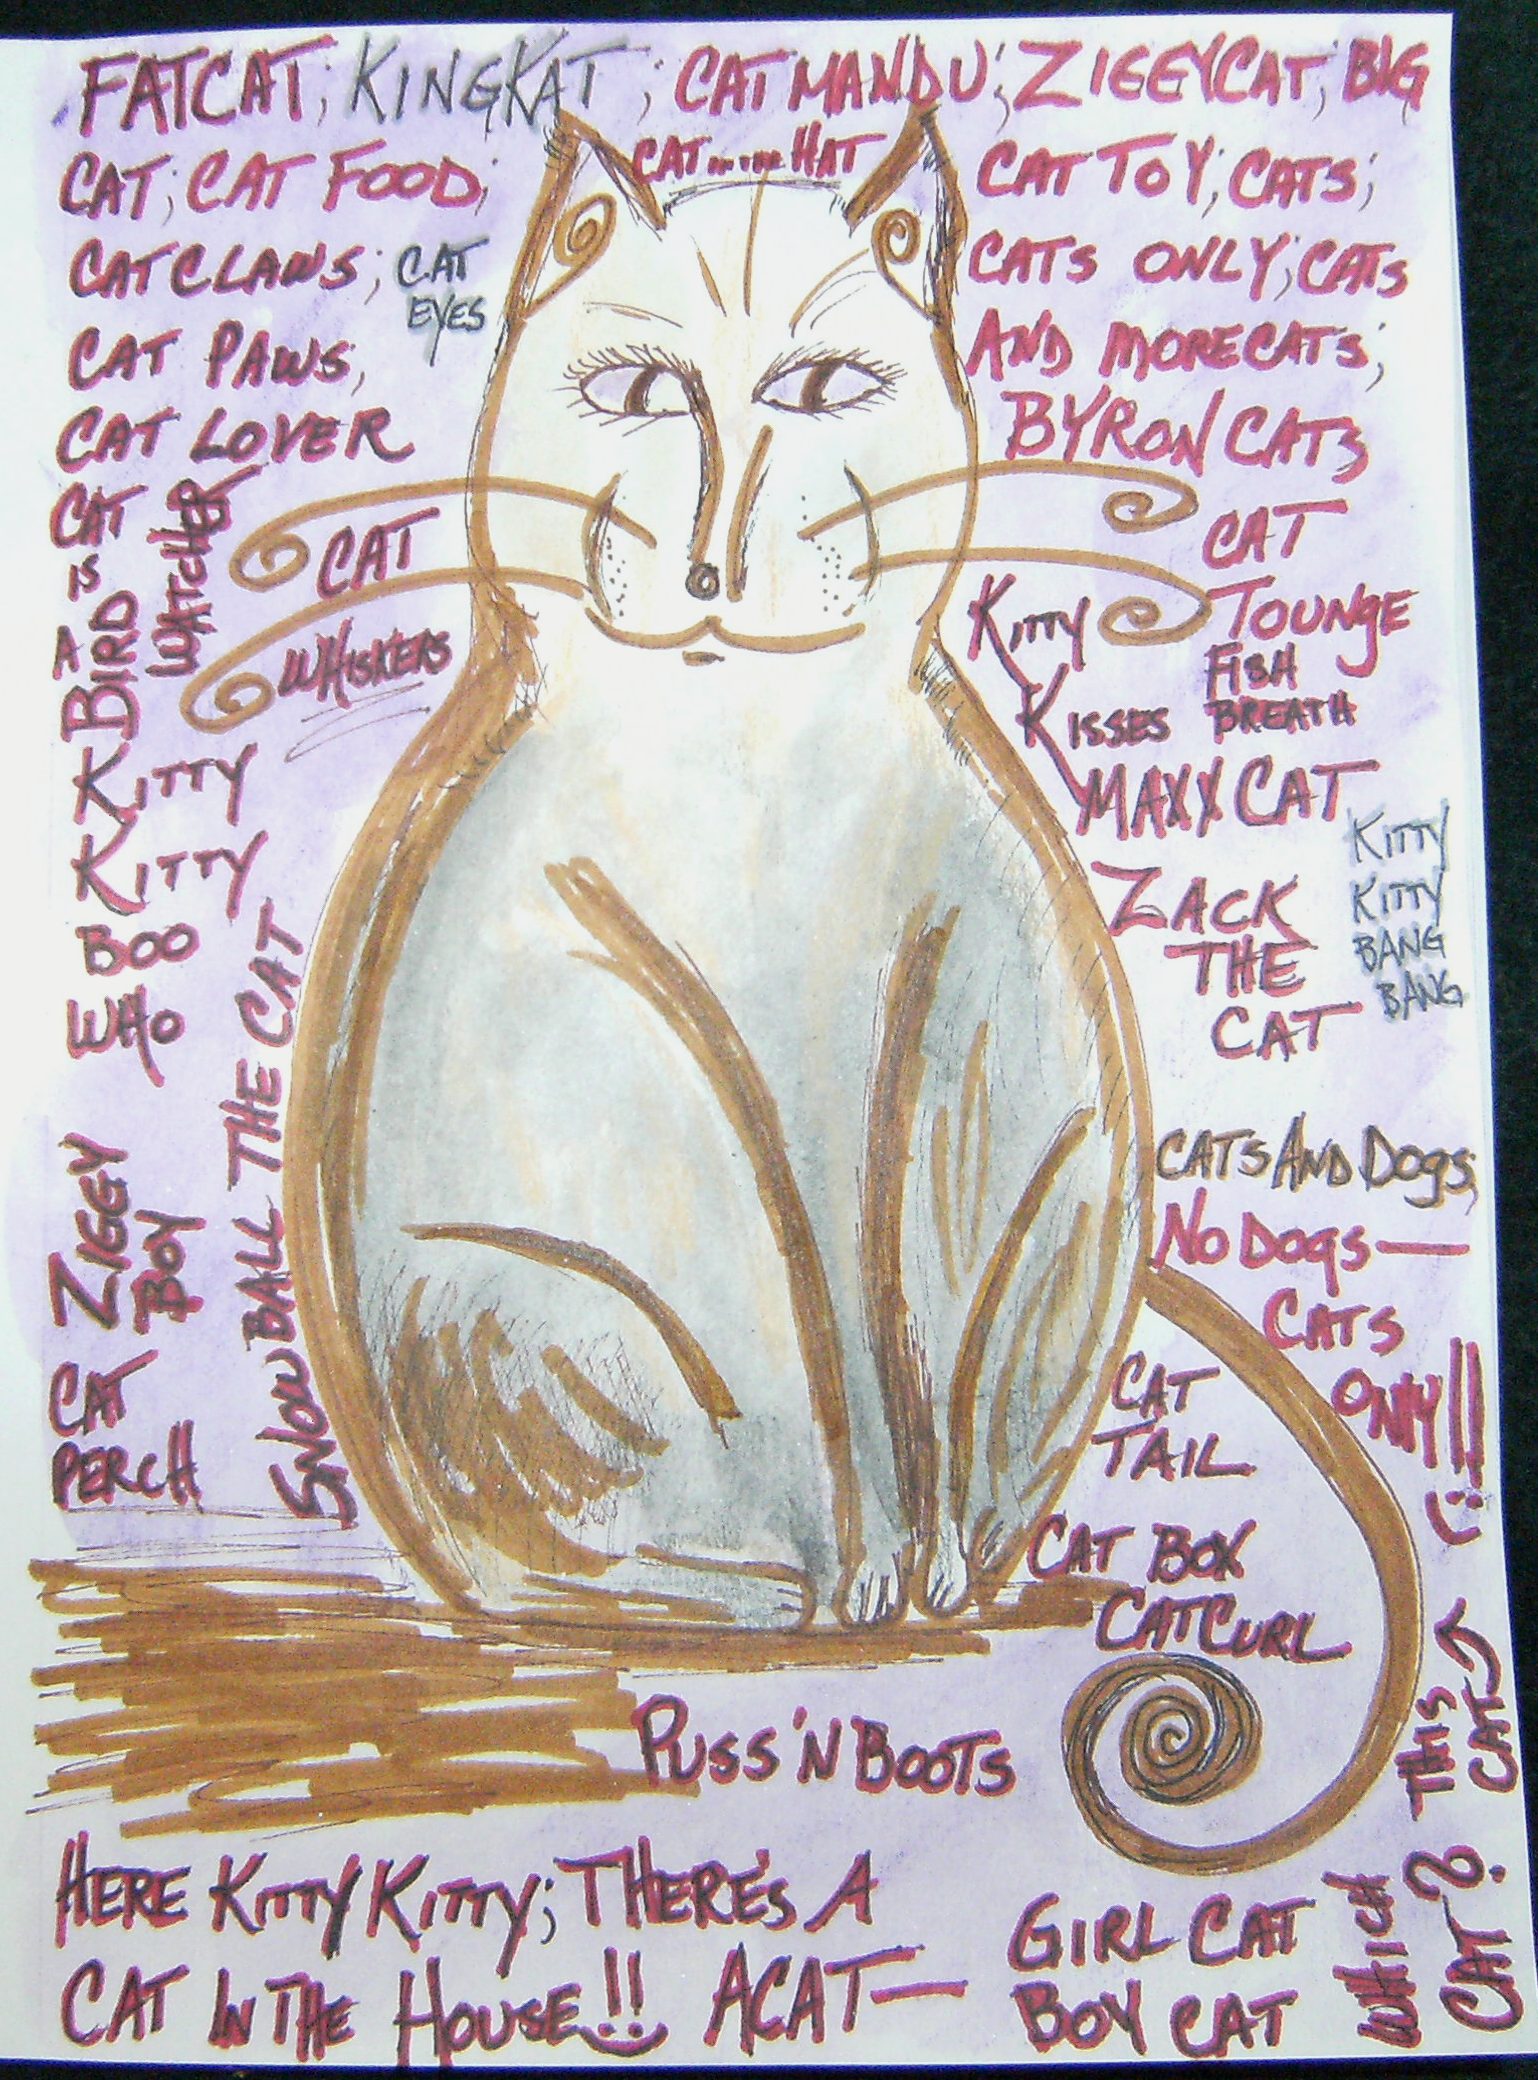 FATCAT; KINGKAT; CATMANDU; ZIGGYCAT; BIG
CAT; CAT FOOD;
CAT....HAT
CAT TOY; CATS;
CAT CLAWS; CAT
EYES
CATS ONLY; CATS
CAT PAWS,
AND MORE CATS;
CAT LOVER
BYRON CATS
CAT
IS
A
BIRD
WATCHER
CAT
WHISKERS
CAT
TOUNGE
FISH
BREATH
KITTY
KISSES
MAXX CAT
KITTY
KITTY
BOO
WHO
KITTY
KITTY
BANG
BANG
ZACK
THE
CAT
SNOWBALL THE CAT
ZIGGY
BOY
CATS AND DOGS;
NO DOGS—
CATS
ONLY!!! :)
CAT
PERCH
CAT
TAIL
CAT BOX
CAT CURL
PUSS 'N BOOTS
HERE KITTY KITTY; THERE'S A
CAT IN THE HOUSE!! ACAT—
GIRL CAT
BOY CAT
WHICH
CAT?
THIS
CAT→